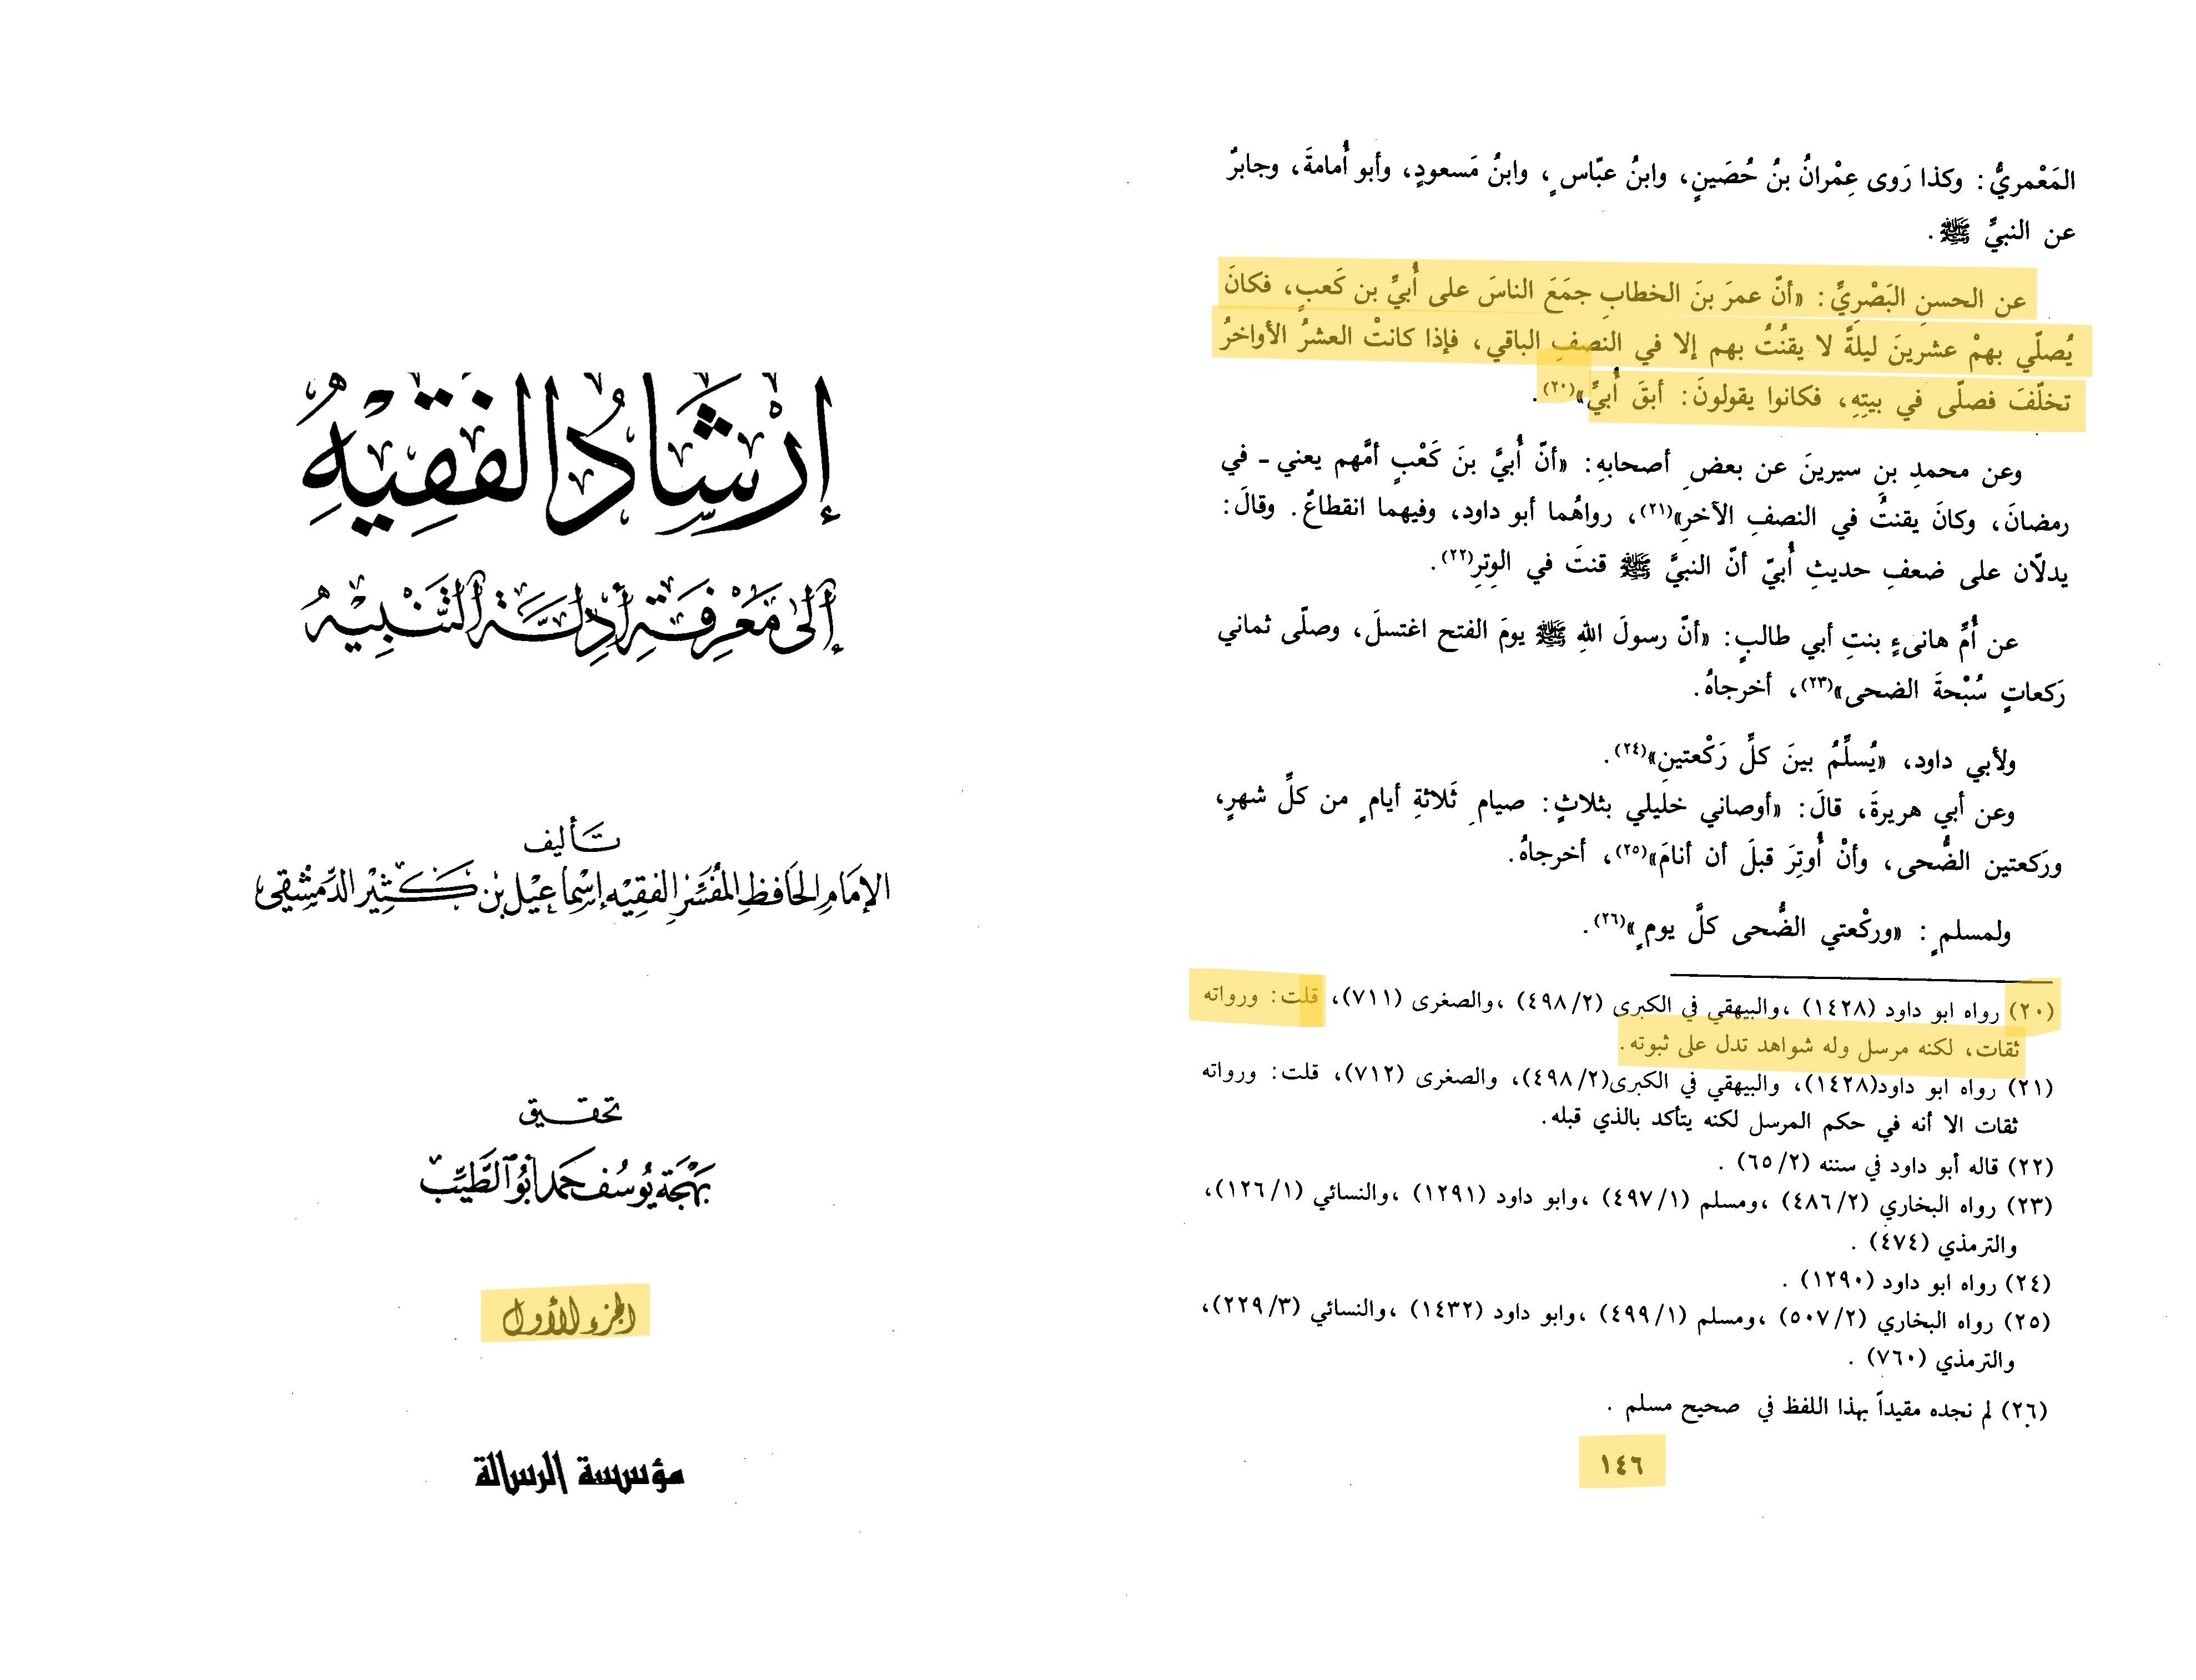 إِرْشَادُ الفَقِيهِ
إِلى مَعْرِفَةِ أَدِلَّةِ التَّنْبِيْهُ
تَأليف
الإمَامِ الحَافِظِ المُفَسِّرِ الفَقِيْهِ إِسْمَاعِيْل بْن كَثِيْر الدِّمَشْقِي
تحقيق
بَهْجَة يُوسُف حَمَد أبُو الطَّيِّب
الجزء الأول
مؤسسة الرسالة
المَعْمريُّ: وكذا رَوى عِمْرانُ بنُ حُصَينٍ، وابنُ عبّاسٍ، وابنُ مَسعودٍ، وأبو أُمامةَ، وجابرٌ
عن النبيِّ ﷺ.
عن الحسنِ البَصْرِيِّ: «أنّ عمرَ بنَ الخطابِ جمَعَ الناسَ على أُبيِّ بن كَعبٍ، فكانَ
يُصلّي بهمْ عشرينَ ليلةً لا يقنُتُ بهم إلا في النصفِ الباقي، فإذا كانتْ العشرُ الأواخرُ
تخلّفَ فصلّى في بيتِهِ، فكانوا يقولونَ: أبقَ أُبيُّ»(٢٠).
وعن محمدِ بنِ سيرينَ عن بعضِ أصحابهِ: «أنّ أُبيَّ بنَ كَعْبٍ أمَّهم يعني - في
رمضانَ، وكانَ يقنتُ في النصفِ الآخرِ»(٢١)، رواهُما أبو داود، وفيهما انقطاعٌ. وقالَ:
يدلّان على ضعفِ حديثِ أُبيّ أنّ النبيَّ ﷺ قنتَ في الوِترِ(٢٢).
عن أُمِّ هانىءٍ بنتِ أبي طالبٍ: «أنّ رسولَ اللهِ ﷺ يومَ الفتح اغتسلَ، وصلّى ثماني
رَكعاتٍ سُبْحةَ الضحى»(٢٣)، أخرجاهُ.
ولأبي داود، «يُسلِّمُ بينَ كلِّ رَكْعتينِ»(٢٤).
وعن أبي هريرةَ، قالَ: «أوصاني خليلي بثلاثٍ: صيامِ ثَلاثةِ أيامٍ من كلِّ شهرٍ،
ورَكعتين الضُّحى، وأنْ أُوتِرَ قبلَ أن أنامَ»(٢٥)، أخرجاهُ.
ولمسلمٍ: «وركْعتي الضُّحى كلَّ يومٍ»(٢٦).
(٢٠) رواه ابو داود (١٤٢٨) ،والبيهقي في الكبرى (٤٩٨/٢) ،والصغرى (٧١١)، قلت: ورواته
ثقات، لكنه مرسل وله شواهد تدل على ثبوته.
(٢١) رواه ابو داود(١٤٢٨)، والبيهقي في الكبرى(٤٩٨/٢)، والصغرى (٧١٢)، قلت: ورواته
ثقات الا أنه في حكم المرسل لكنه يتأكد بالذي قبله.
(٢٢) قاله أبو داود في سننه (٦٥/٢) .
(٢٣) رواه البخاري (٤٨٦/٢) ،ومسلم (٤٩٧/١) ،وابو داود (١٢٩١) ،والنسائي (١٢٦/١)،
والترمذي (٤٧٤) .
(٢٤) رواه ابو داود (١٢٩٠) .
(٢٥) رواه البخاري (٥٠٧/٢) ،ومسلم (٤٩٩/١) ،وابو داود (١٤٣٢) ،والنسائي (٢٢٩/٣)،
والترمذي (٧٦٠) .
(٢٦) لم نجده مقيداً بهذا اللفظ في صحيح مسلم .
١٤٦